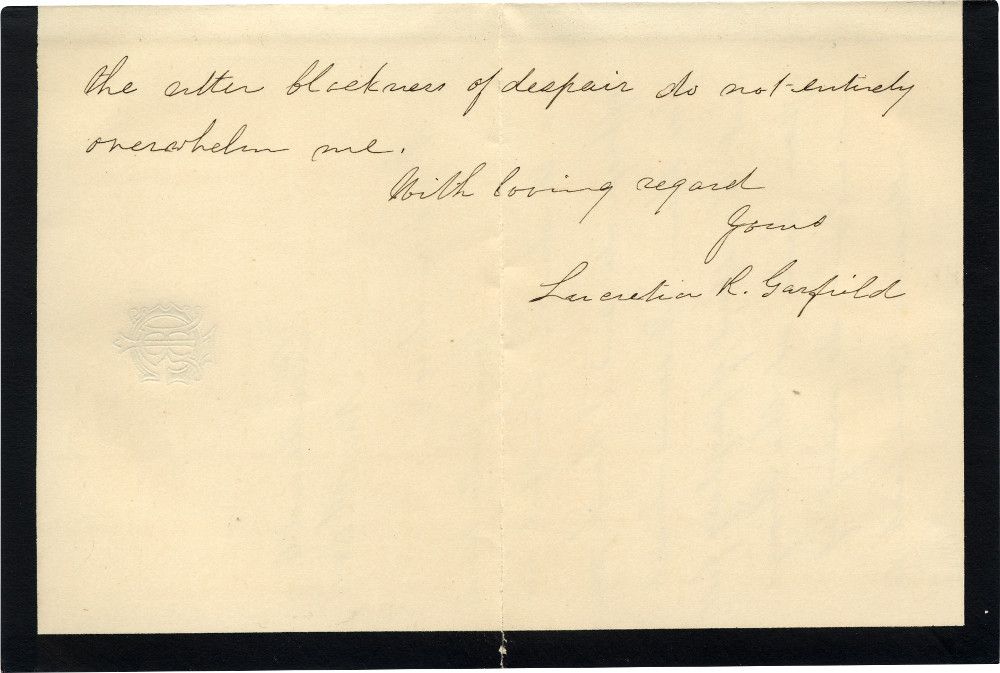 the utter blackness of despair do not entirely
overwhelm me.
With loving regard
Yours
Lucretia R. Garfield